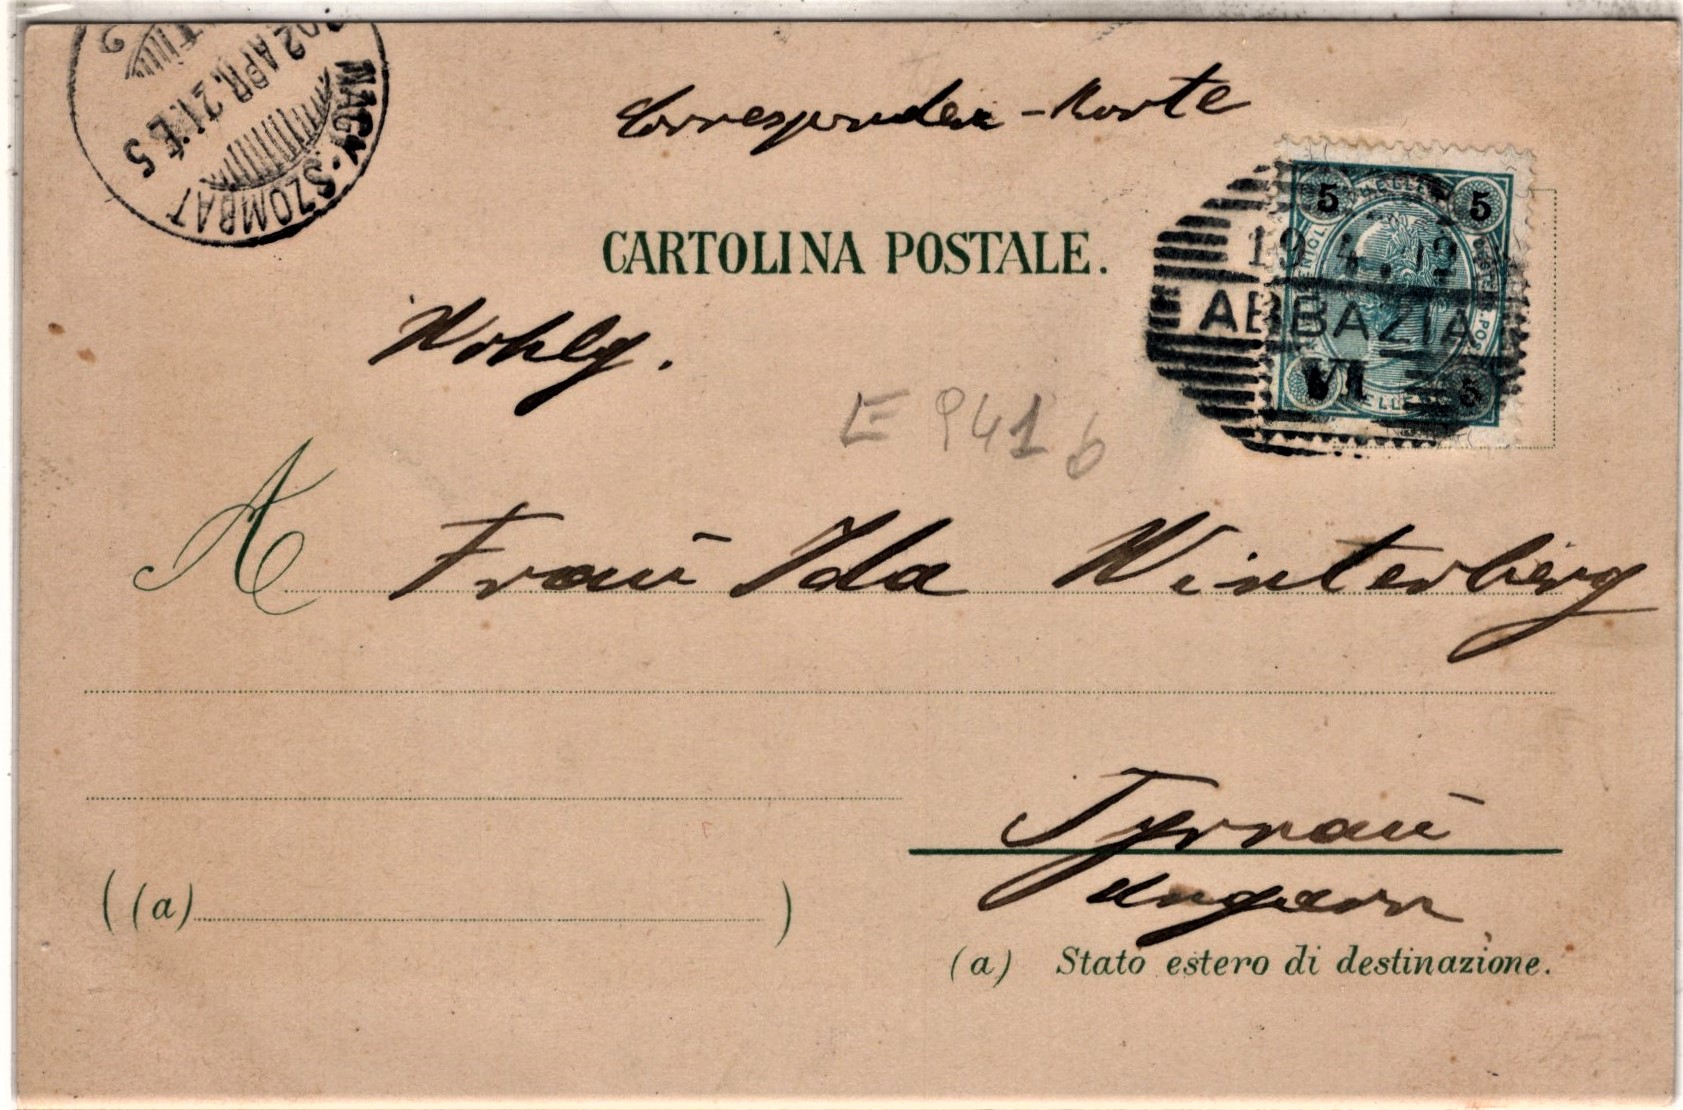 NAGY-SZOMBAT
902 APR. 21. É 5
Correspondenz-Karte
CARTOLINA POSTALE.
5 5
19 4 02
ABBAZIA
VI
5
Wohlg.
E 941 b
A Frau Ida Winterberg
Tyrnau
Ungarn
((a) )
(a) Stato estero di destinazione.